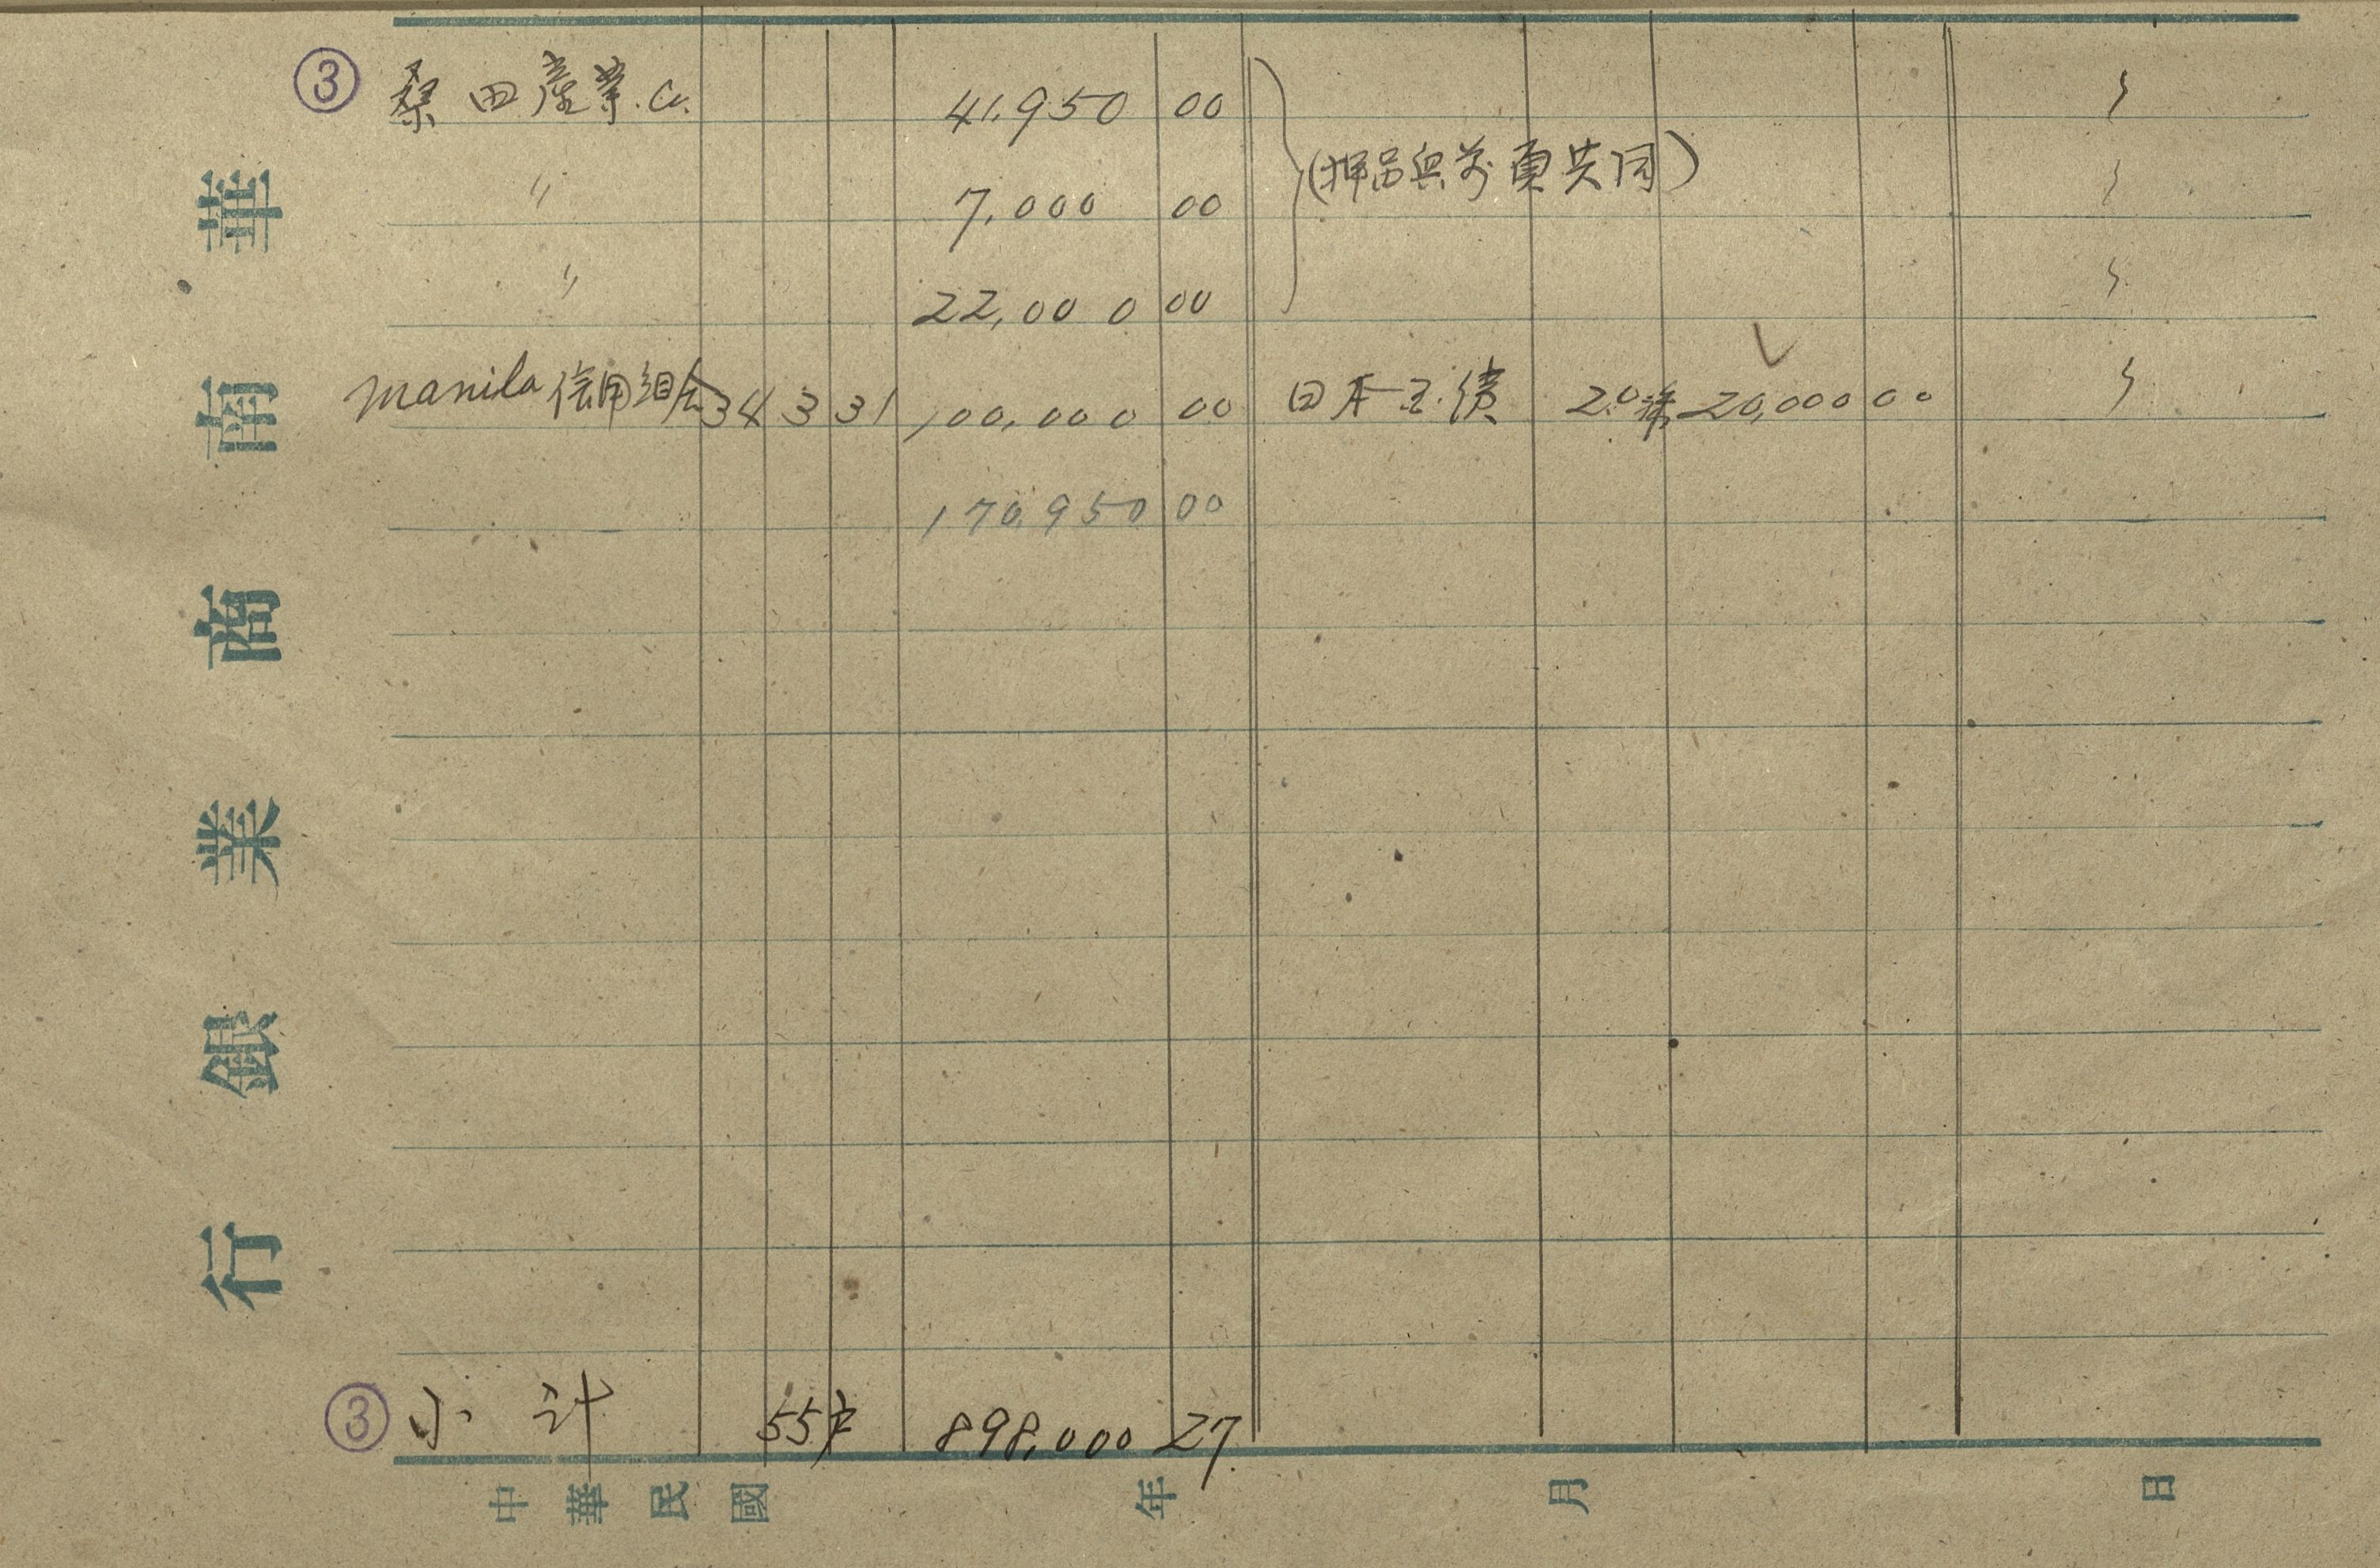 ③ 桑田產業.Co. 41,950 00
〃 7,000 00 (押品與前頁共同)
〃 22,000 00
manila 信用組合 34 3 31 100,000 00 日本公債 20株 20,000 00
170,950 00
③ 小計 55户 898,000 27
華南商業銀行
中華民國 年 月 日